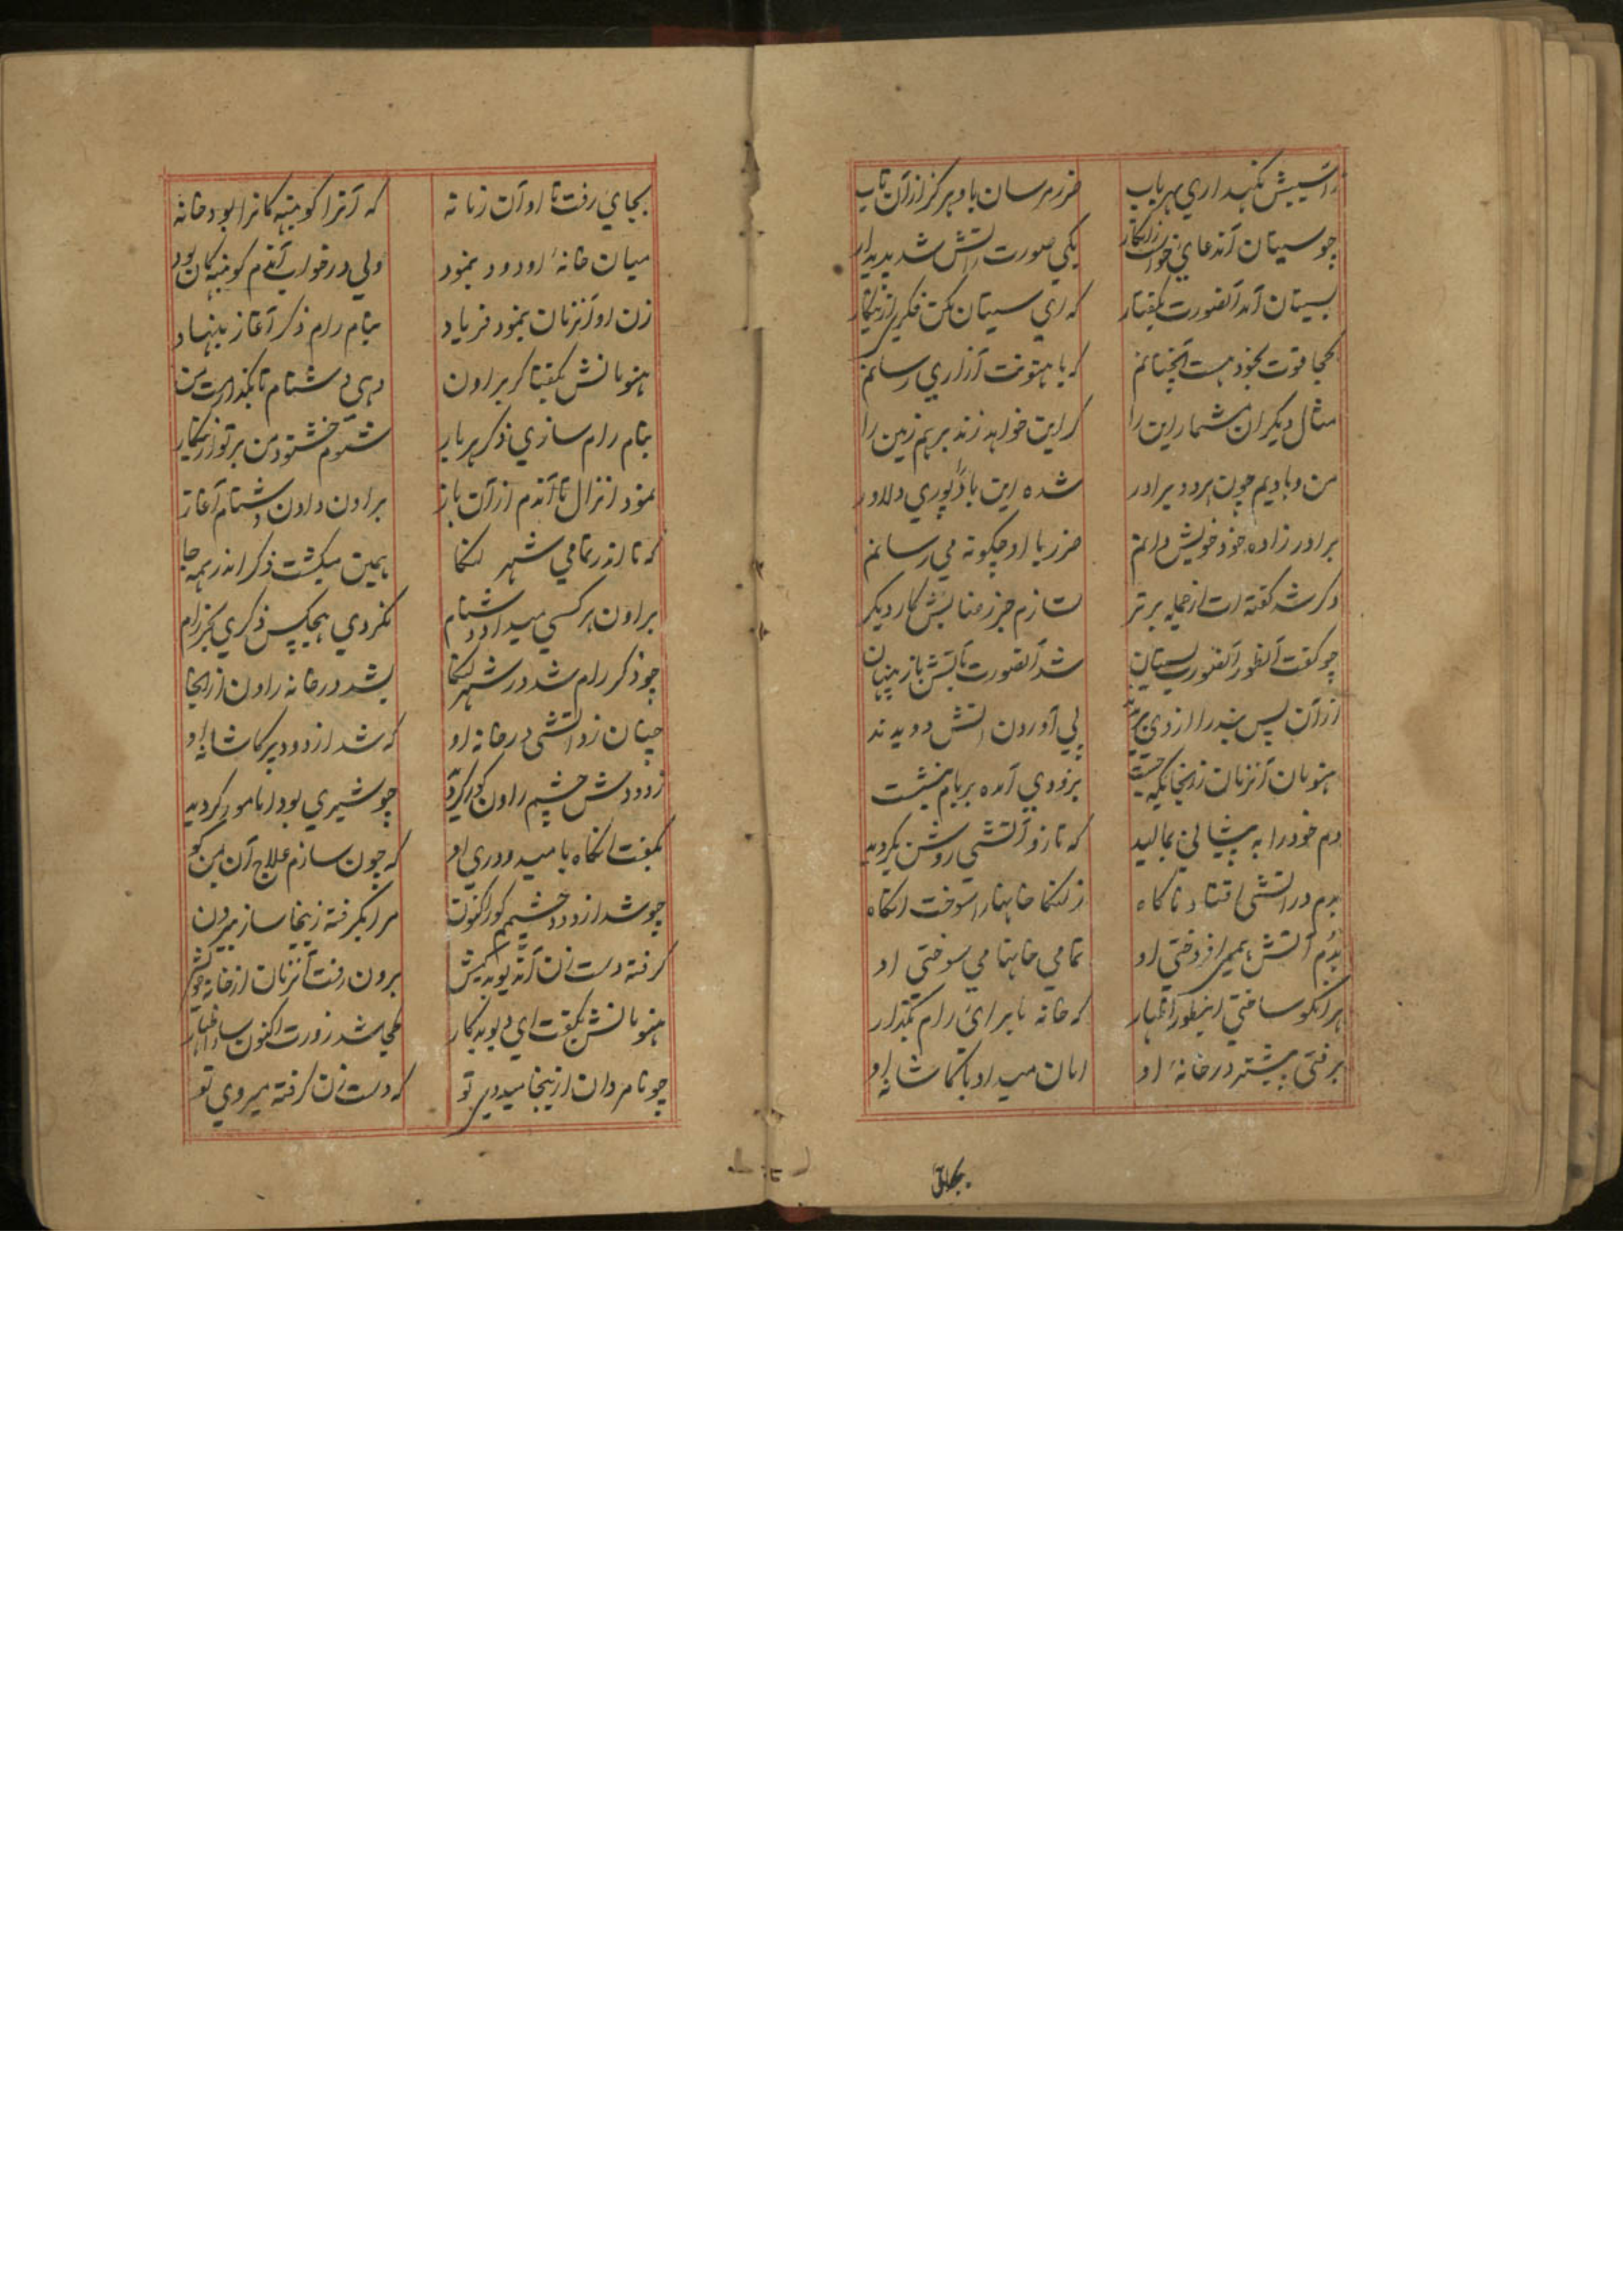 ز آسیبش نکهداری بهر باب ضرر مرسان باو هرکز ازان تاب
چو سیتان آندعای خواند یکی صورت ز آتش شد پدیدار
بسیتان آمد آنصورت بکفتار که ای سیتان مکن فکری ازینکار
کجا قوت بخود هست آنچنانم که با هنونت آزاری رسانم
مثال دیکران مشمار این را که این خواهد زند برهم زمین را
من و بادیم چون هر دو برادر شده این باد را پوری دلاور
برادر زاده خود خویش دانم ضرر با او چکونه می رسانم
دکر شد کفته ات از جمله برتر نسازم جز رضایش کار دیکر
چو کفت آنطور آنصورت بسیتان شد آنصورت باز پنهان
ازان پس بندرا از دی پی آوردن آتش دویدند
هنومان آنزمان زانجا یکی جست بزودی آمده بر بام بنشست
دم خود را به پیشانی بمالید که تا زو آتشی روشن بکردید
بدم در آتشی افتاد ناکاه ز لنکا خانها را سوخت انکاه
بدم آتش همی افروختی او تمامی خانها می سوختی او
هر آنکو ساختی اینطور اظهار که خانه با برای رام بکذار
برفتی پیشتر در خانه او امان میداد با کاشانه او
بجای
بجای رفت تا او آن زمانه که آنرا کونبهه کانرا بود خانه
میان خانه او دود بنمود ولی در خواب آندم کونبهه کان بود
زن او آنزمان بنمود فریاد بنام رام ذکر آغاز بنهاد
هنومانش بکفتا کر براون دهی دشنام تا بکذارمت من
بنام رام سازی ذکر هر بار شوم خشنود من بر تو ازینکار
نمود انزال تا آندم ازان باز براون دادن دشنام آغاز
که تا اندر تمامی شهر لنکا همین میکشت ذکر اندر همه جا
براون هر کسی میداد دشنام نکردی هیچکس ذکری بجز رام
چو ذکر رام شد در شهر لنکا بشد در خانه راون از انجا
چنان زد آتشی در خانه او که شد از دود پر کاشانه او
ز دودش چشم راون کور کردید چو شیری بود اما مور کردید
بکفت انکاه با میدودری او که چون سازم علاج آن بمن کو
چو شد از دود چشمم کور اکنون مرا بکرفته زینجا ساز بیرون
کرفته دست زن آندیو بدکیش برون رفت آنزمان از خانه خویش
هنومانش بکفت ای دیو بدکار کجا شد زورت اکنون ساز اظهار
چو نامردان ازینجا میدوی تو که دست زن کرفته میروی تو